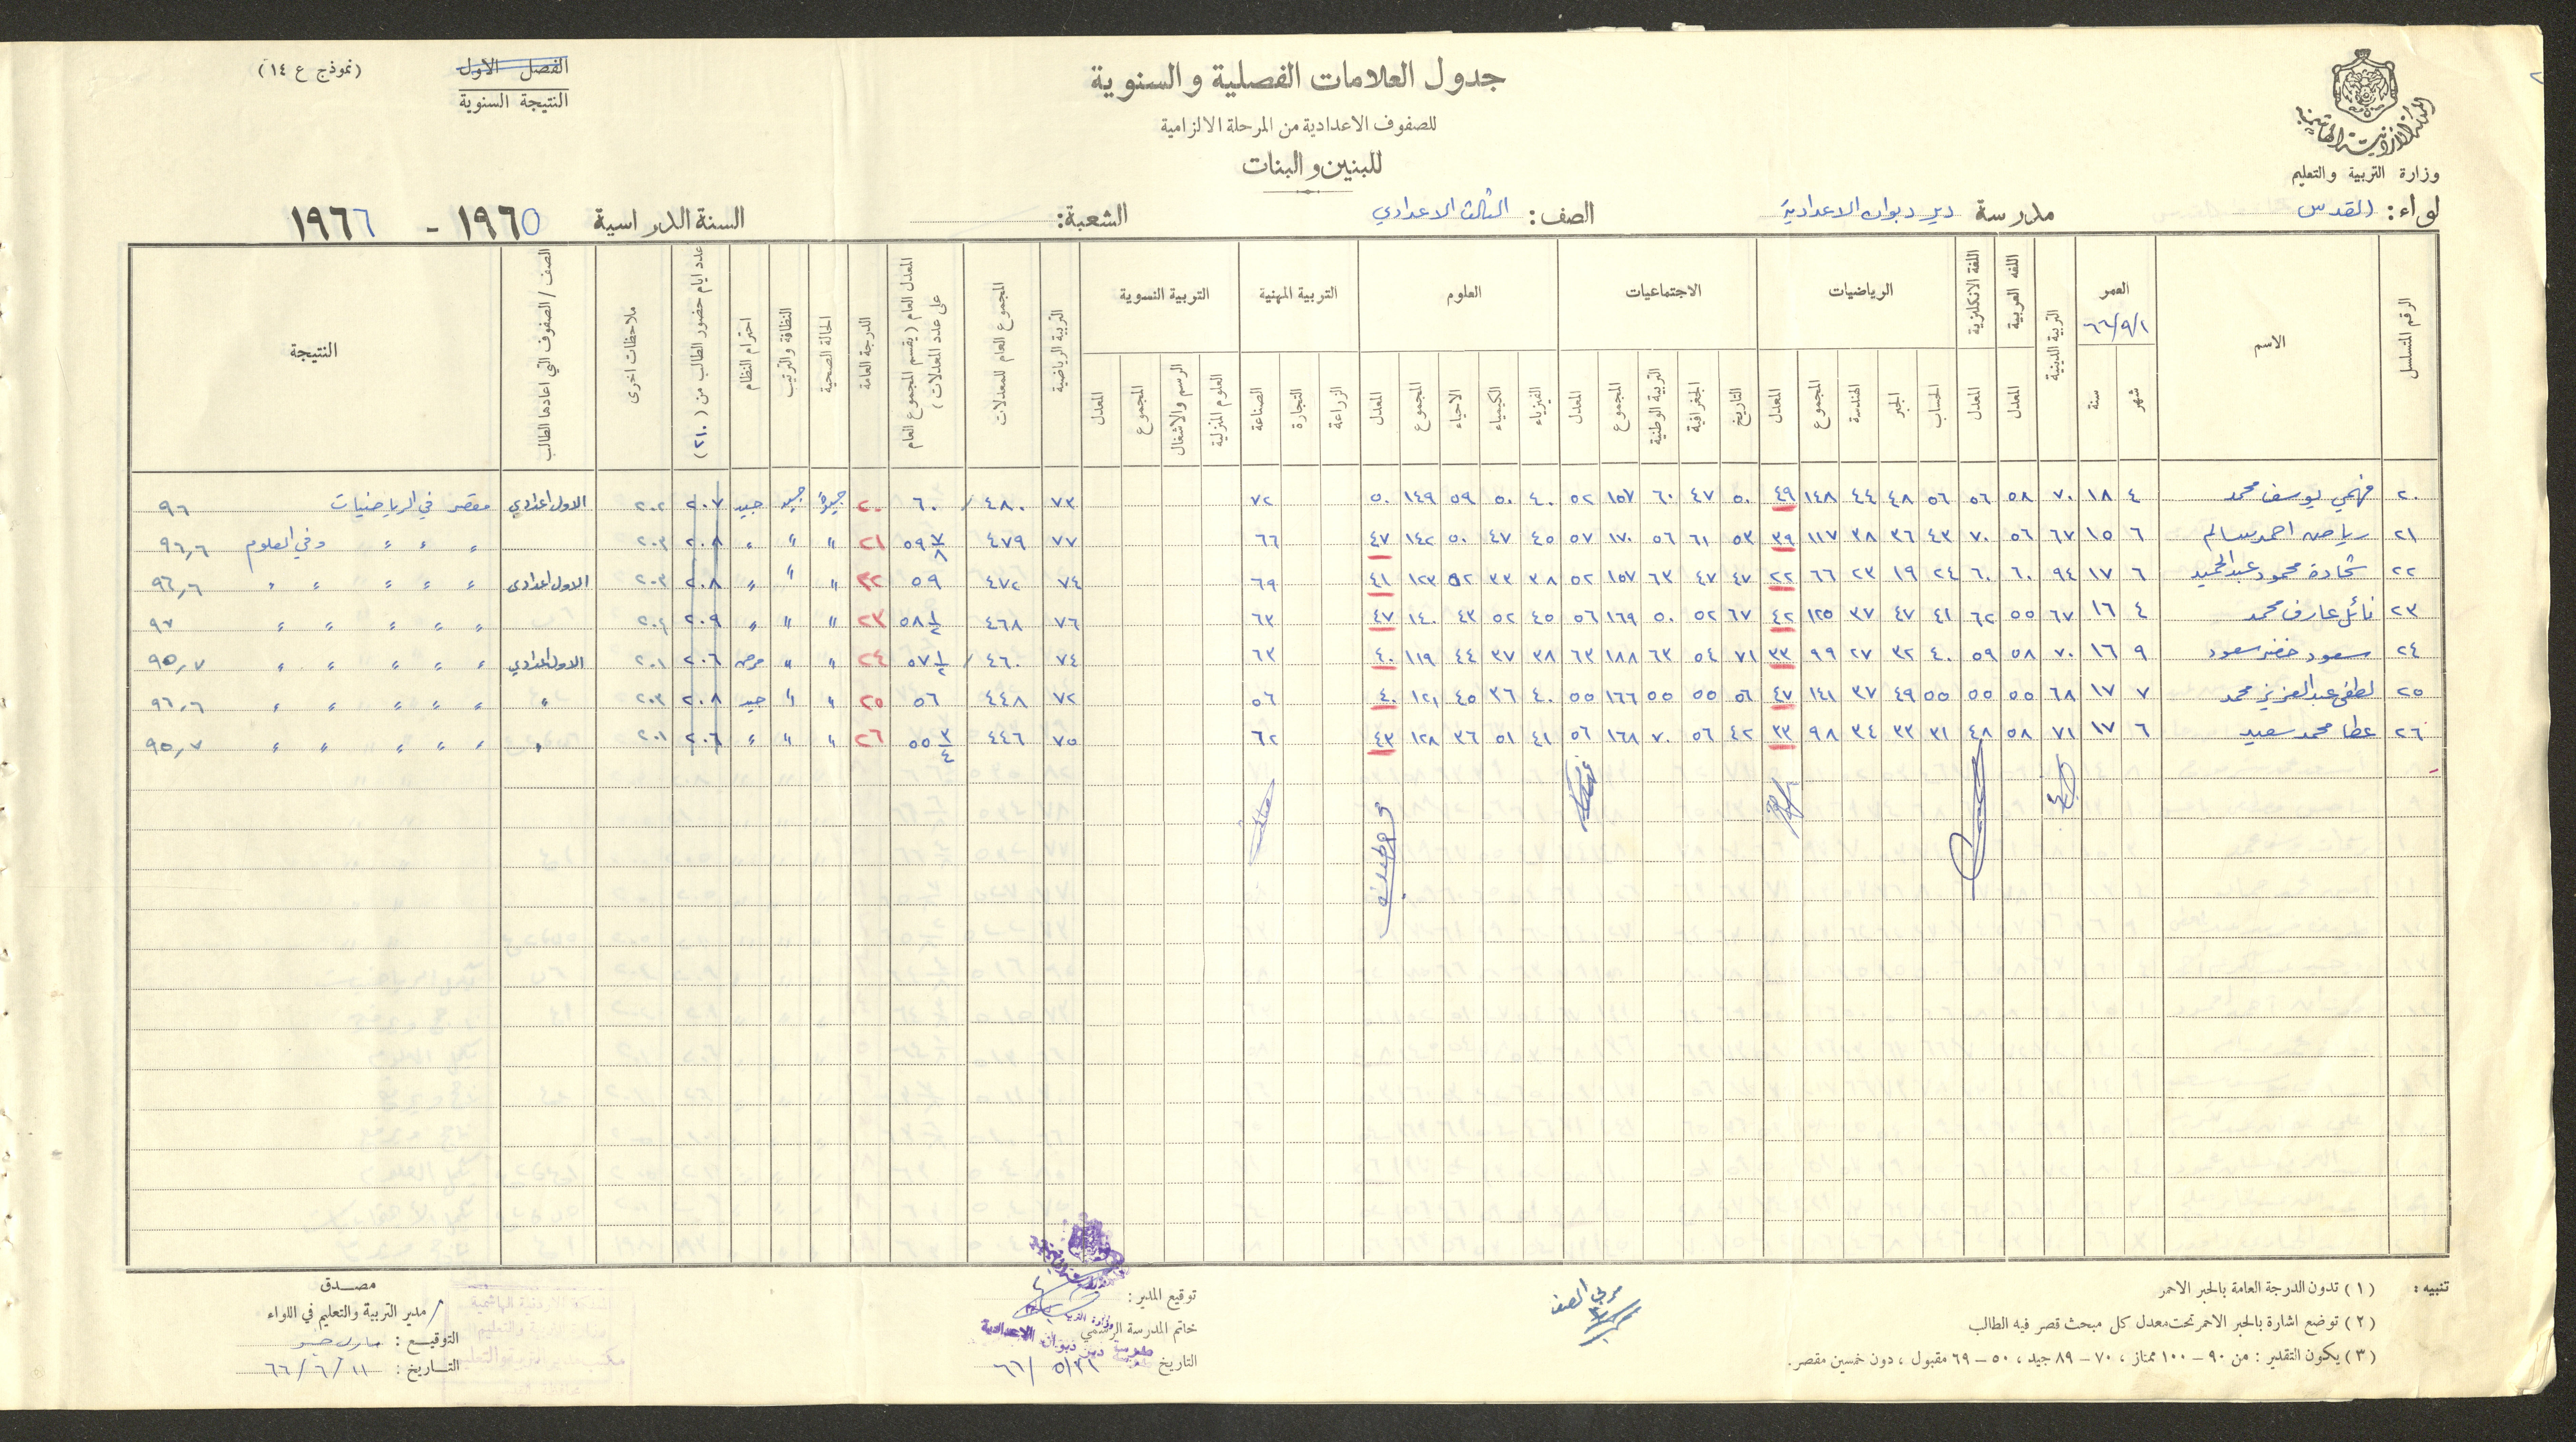 المملكة الاردنية الهاشمية
وزارة التربية والتعليم
جدول العلامات الفصلية والسنوية
للصفوف الاعدادية من المرحلة الالزامية
للبنين والبنات
الفصل الاول
النتيجة السنوية
(نموذج ع ١٤)
لواء: القدس
مدرسة دير دبوان الاعدادية
الصف: الثالث الاعدادي
الشعبة:
السنة الدراسية ١٩٦٥ - ١٩٦٦
الرقم المتسلسل
الاسم
العمر ٦٦/٩/١
شهر سنة
التربية الدينية
اللغه العربية المعدل
اللغة الانكلزية المعدل
الرياضيات
الحساب الجبر الهندسة المجموع المعدل
الاجتماعيات
التاريخ الجغرافية التربية الوطنية المجموع المعدل
العلوم
الفيزياء الكيمياء الاحياء المجموع المعدل
التربية المهنية
الزراعة التجارة الصناعة
التربية النسوية
العلوم المنزلية الرسم والاشغال المجموع المعدل
التربية الرياضية
المجموع العام للمعدلات
المعدل العام (يقسم المجموع العام على عدد المعدلات)
الدرجة العامة
الحالة الصحية
النظافة والترتيب
احترام النظام
عدد ايام حضور الطالب من (٢١٠)
ملاحظات اخرى
الصف / الصفوف التي اعادها الطالب
النتيجة
٢٠ فهمي يوسف محمد ٤ ١٨ ٧٠ ٥٨ ٥٦ ٥٦ ٤٨ ٤٤ ١٤٨ ٤٩ ٥٠ ٤٧ ٦٠ ١٥٧ ٥٢ ٤٠ ٥٠ ٥٩ ١٤٩ ٥٠ ٧٢ ٧٣ ٤٨٠ ٦٠ ٢٠ جيدة جيد جيد ٢٠٧ ٢٠٢ الاول اعدادي مقصر في الرياضيات ٩٦
٢١ رياض احمد سالم ٦ ١٥ ٦٧ ٥٦ ٧٠ ٤٣ ٣٦ ٣٨ ١١٧ ٣٩ ٥٣ ٦١ ٥٦ ١٧٠ ٥٧ ٤٥ ٤٧ ٥٠ ١٤٢ ٤٧ ٦٦ ٧٧ ٤٧٩ ٥٩ ٧/٨ ٢١ " " " ٢٠٨ ٢٠٣ " " " وفي العلوم ٩٦,٦
٢٢ شحادة محمود عبد الحميد ٦ ١٧ ٩٤ ٦٠ ٦٠ ٢٤ ١٩ ٢٣ ٦٦ ٢٢ ٤٧ ٤٧ ٦٣ ١٥٧ ٥٢ ٣٨ ٣٣ ٥٢ ١٢٣ ٤١ ٦٩ ٧٤ ٤٧٢ ٥٩ ٢٢ " " " ٢٠٨ ٢٠٣ الاول اعدادي " " " " " ٩٦,٦
٢٣ نائل عارف محمد ٤ ١٦ ٦٧ ٥٥ ٦٢ ٤١ ٤٧ ٣٧ ١٢٥ ٤٢ ٦٧ ٥٢ ٥٠ ١٦٩ ٥٦ ٤٥ ٥٢ ٤٣ ١٤٠ ٤٧ ٦٣ ٧٦ ٤٦٨ ٥٨ ١/٢ ٢٣ " " " ٢٠٩ ٢٠٤ " " " " " ٩٧
٢٤ سعود خضر سعود ٩ ١٦ ٧٠ ٥٨ ٥٩ ٤٠ ٣٢ ٢٧ ٩٩ ٣٣ ٧١ ٥٤ ٦٣ ١٨٨ ٦٣ ٣٨ ٣٧ ٤٤ ١١٩ ٤٠ ٦٣ ٧٤ ٤٦٠ ٥٧ ١/٢ ٢٤ " " ٢٠٦ ٢٠١ الاول اعدادي " " " " " ٩٥,٧
٢٥ لطفي عبد العزيز محمد ٧ ١٧ ٦٨ ٥٥ ٥٥ ٥٥ ٤٩ ٣٧ ١٤١ ٤٧ ٥٦ ٥٥ ٥٥ ١٦٦ ٥٥ ٤٠ ٣٦ ٤٥ ١٢١ ٤٠ ٥٦ ٧٢ ٤٤٨ ٥٦ ٢٥ " " جيد ٢٠٨ ٢٠٣ " " " " " " ٩٦,٦
٢٦ عطا محمد سعيد ٦ ١٧ ٧١ ٥٨ ٤٨ ٣١ ٣٣ ٣٤ ٩٨ ٣٣ ٤٢ ٥٦ ٧٠ ١٦٨ ٥٦ ٤١ ٥١ ٣٦ ١٢٨ ٤٣ ٦٢ ٧٥ ٤٤٦ ٥٥ ٣/٤ ٢٦ " " " ٢٠٦ ٢٠١ " " " " " " ٩٥,٧
تنبيه: (١) تدون الدرجة العامة بالحبر الاحمر
(٢) توضع اشارة بالحبر الاحمر تحت معدل كل مبحث قصر فيه الطالب
(٣) يكون التقدير: من ٩٠ – ١٠٠ ممتاز، ٧٠ – ٨٩ جيد، ٥٠ – ٦٩ مقبول، دون خمسين مقصر.
مربي الصف
توقيع المدير:
خاتم المدرسة الرسمي
مدرسة دير دبوان الاعدادية
التاريخ ٦٦/٥/٣١
مصدق
/ مدير التربية والتعليم في اللواء
التوقيع:
التاريخ: ٦٦/٦/١١